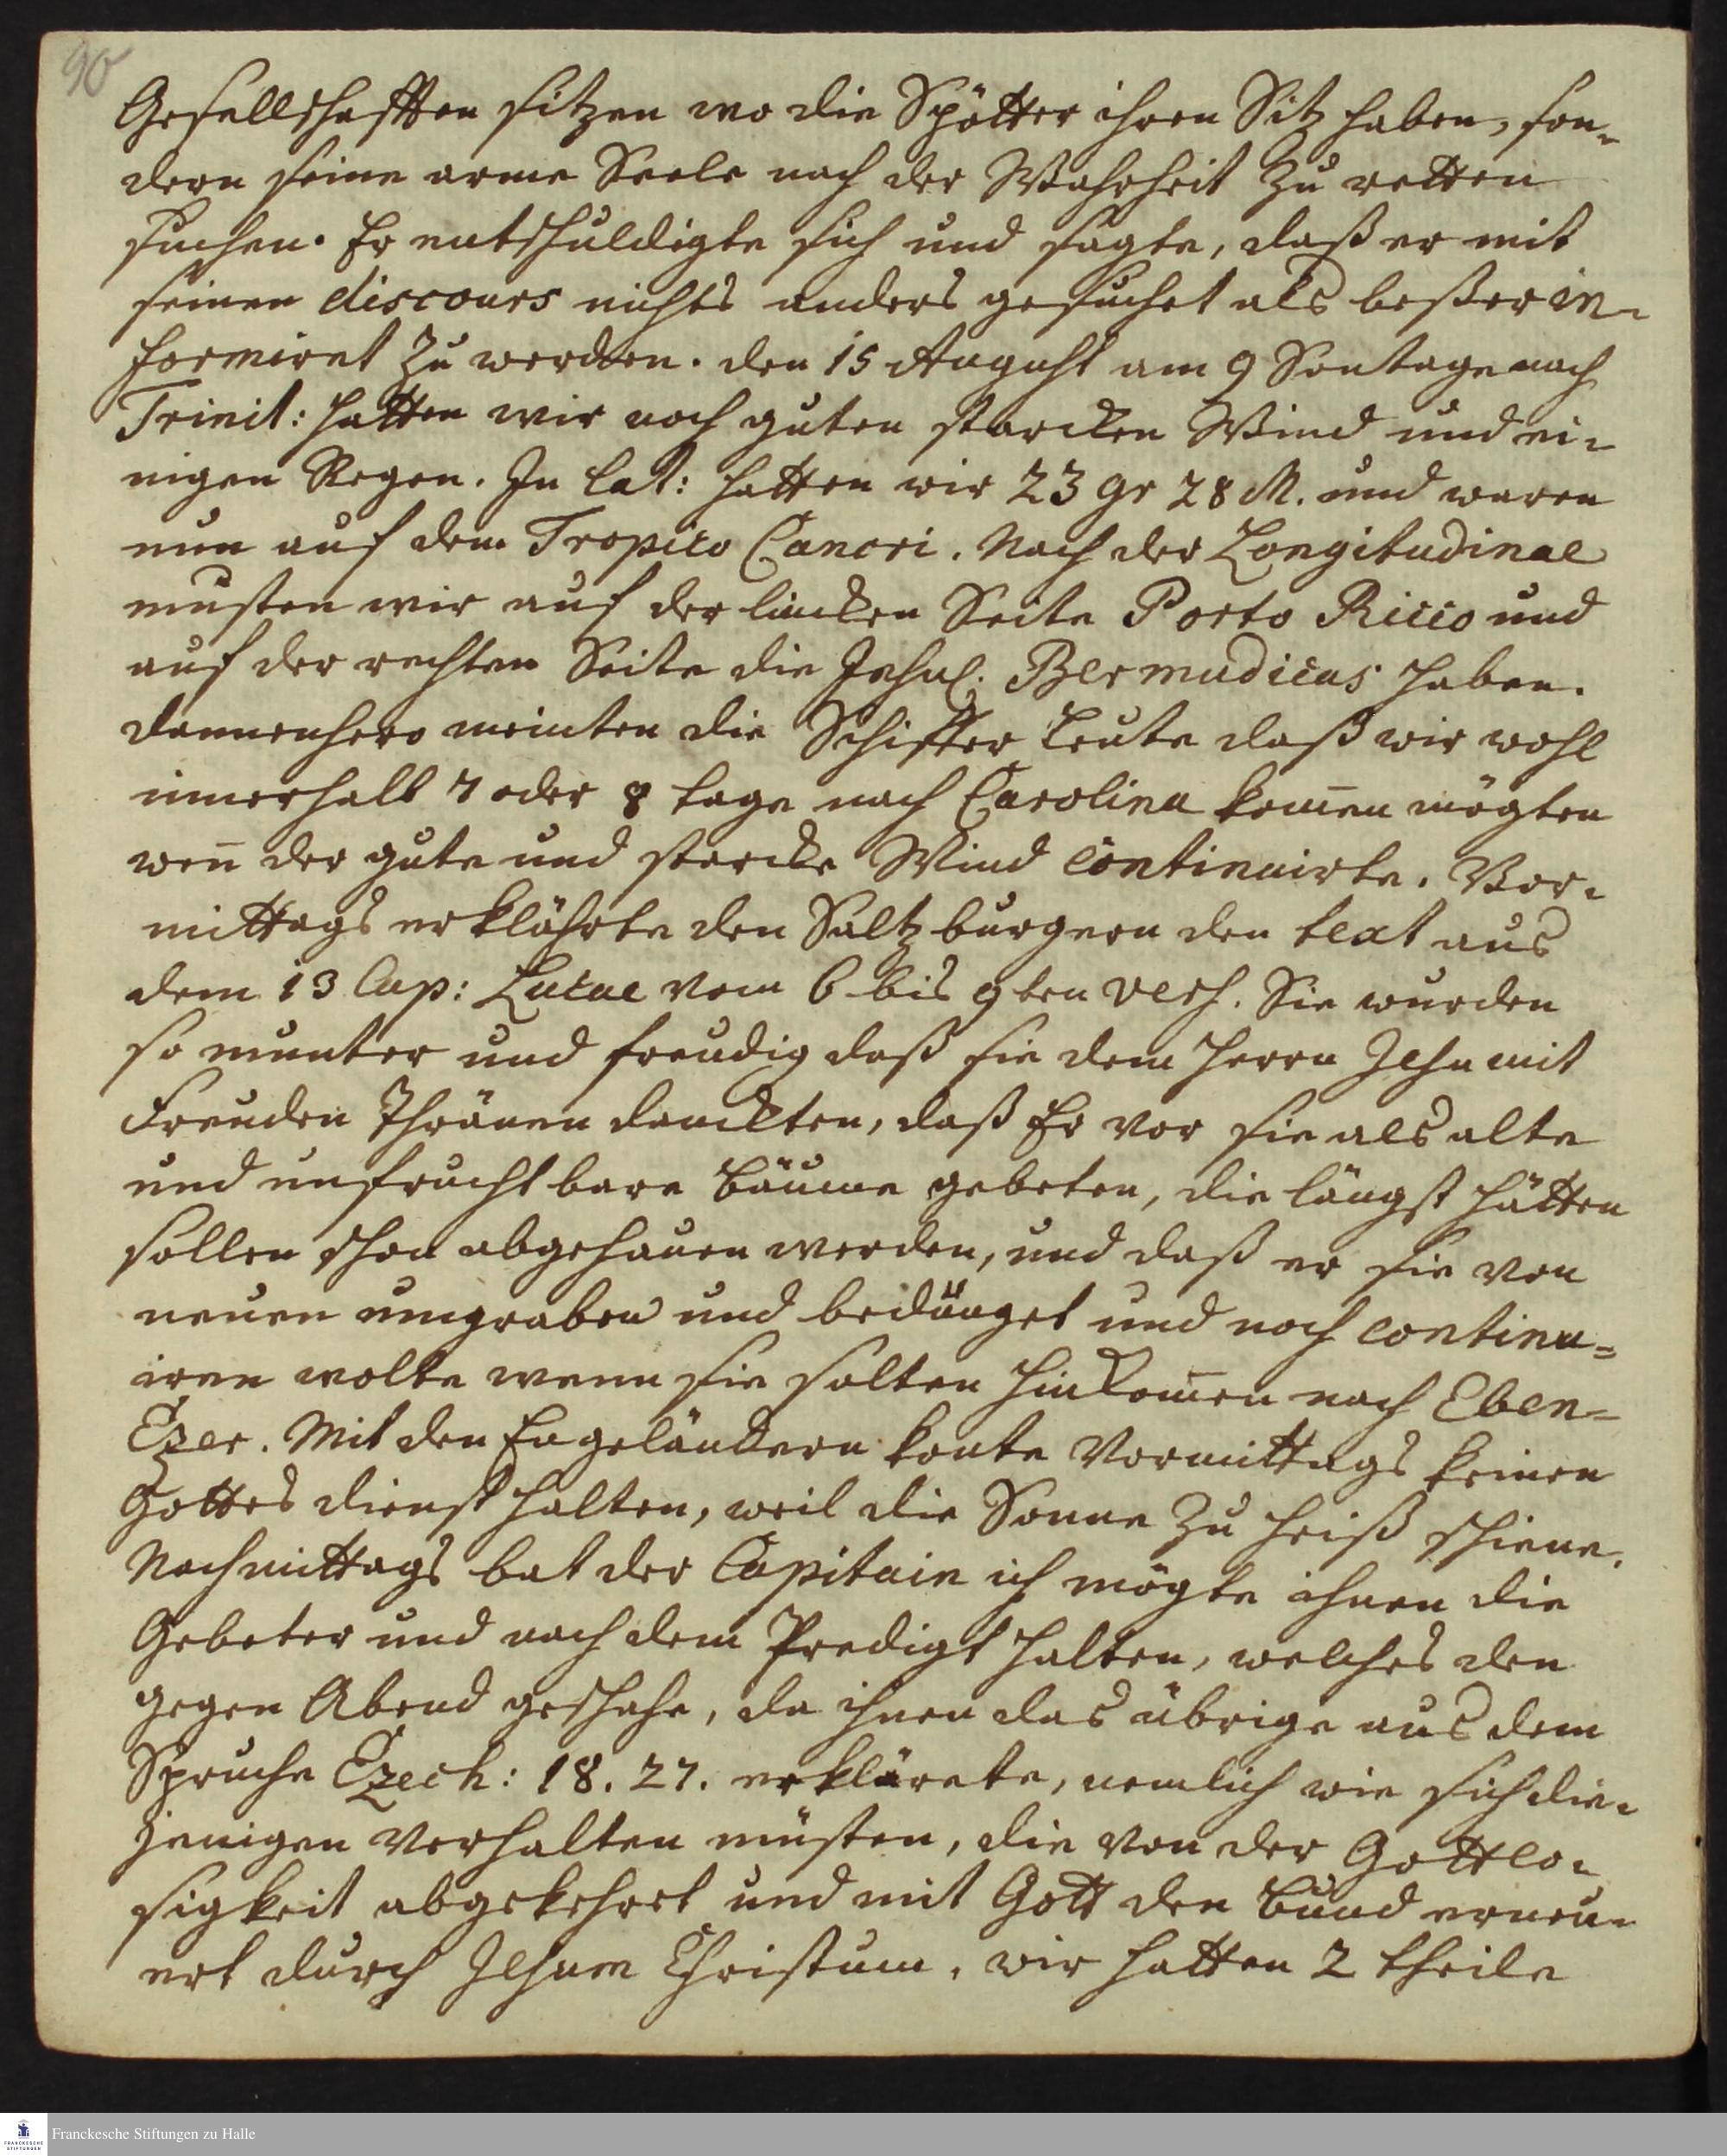 90
Gesellschafften sitzen wo die Spötter ihren Sitz haben, son-
dern seine arme Seele nach der Wahrheit zu retten
suchen. Er entschuldigte sich und sagte, daß er mit
seinen discours nichts anders gesuchet als beßer in-
formiret zu werden. den 15 August am 9 Sontage nach
Trinit: hatten wir noch guten starcken Wind und ei-
nigen Regen. In Lat: hatten wir 23 gr 28 M. und waren
nun auf dem Tropico Cancri. Nach der Longitudinal
musten wir auf der lincken Seite Porto Ricco und
auf der rechten Seite die Insul. Bermudicas haben.
dannenhero meinten die Schiffer Leute daß wir wohl
innerhalb 7 oder 8 tage nach Carolina kom̅en mögten
wen̅ der gute und starcke Wind continuirte. Vor-
mittags erklährte den Saltzburgern den text aus
dem 13 Cap: Lucae vom 6 bis 9ten vers. Sie wurden
so munter und freudig daß sie dem Herrn Jesu mit
Freuden Thränen danckten, daß Er vor sie als alte
und unfruchtbare Bäume gebeten, die längst hätten
sollen schon abgehauen werden, und daß er sie von
neuen umgraben und bedünget und noch continu-
iren wolte wenn sie solten hinkom̅en nach Eben-
Ezer. Mit den Engeländern konte Vormittags keinen
Gottesdienst halten, weil die Sonne zu heiß schiene.
Nachmittags bat der Capitain ich mögte ihnen die
Gebeter und nach dem Predigt halten, welches den
gegen Abend geschahe, da ihnen das übrige aus dem
Spruche Ezech: 18. 27. erklärete, nemlich wie sich die-
jenigen verhalten müsten, die von der Gottlo-
sigkeit abgekehret und mit Gott den Bund erneu-
ert durch Jesum Christum, wir hatten 2 theile
Franckesche Stiftungen zu Halle